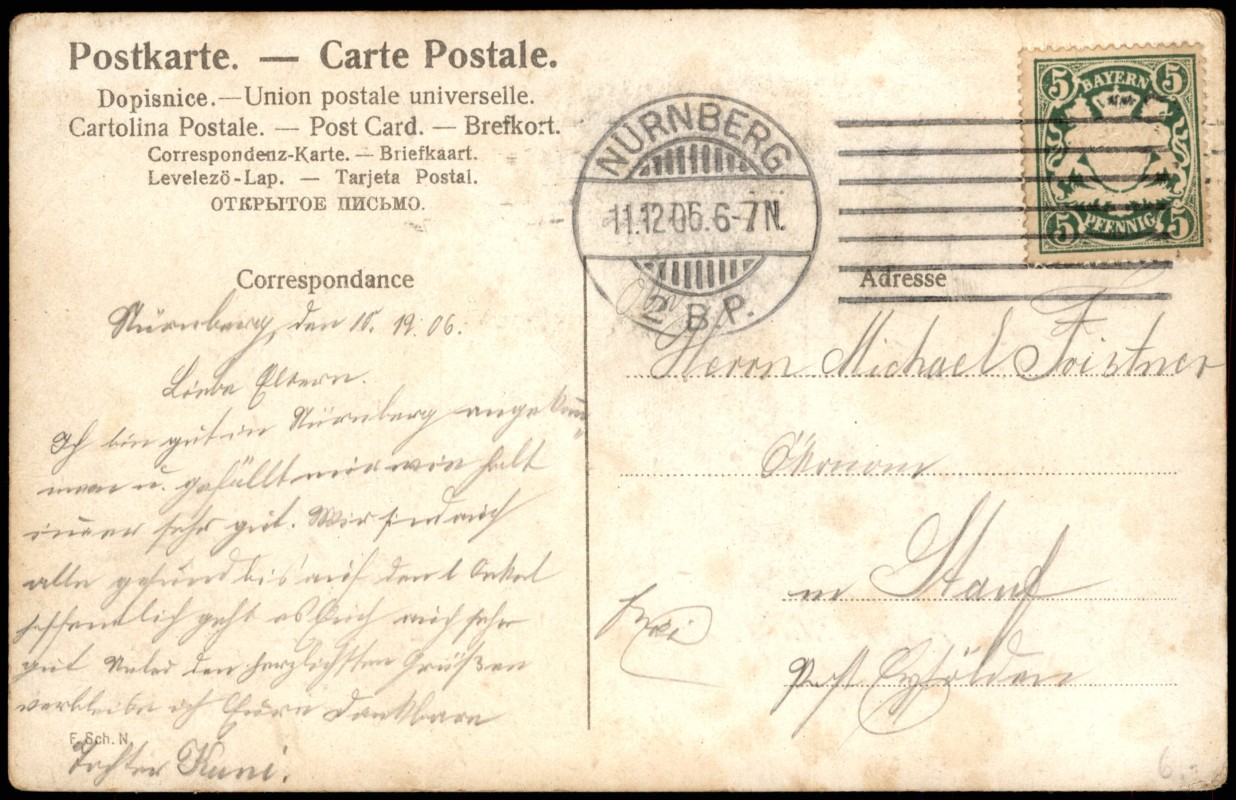 Postkarte. — Carte Postale.
Dopisnice. — Union postale universelle.
Cartolina Postale. — Post Card. — Brefkort.
Correspondenz-Karte. — Briefkaart.
Levelező-Lap. — Tarjeta Postal.
ОТКРЫТОЕ ПИСЬМО.
NÜRNBERG
11.12.06.6-7N.
2 B.P.
5 BAYERN 5
5 PFENNIG 5
Correspondance
Nürnberg, den 10. 19.06.
Liebe Eltern.
Ich bin gut in Nürnberg angekom„
men u. gefällt mir wie halt
immer sehr gut. Wir sind auch
alle gesund bis auf den l Onkel
hoffentlich geht es Euch auch sehr
gut Unter den herzlichsten Grüßen
verbleibe ich Eure dankbare
Tochter Kuni.
F. Sch. N.
Adresse
Herrn Michael
Ökonom
in Stauf
Post
frei
6.-